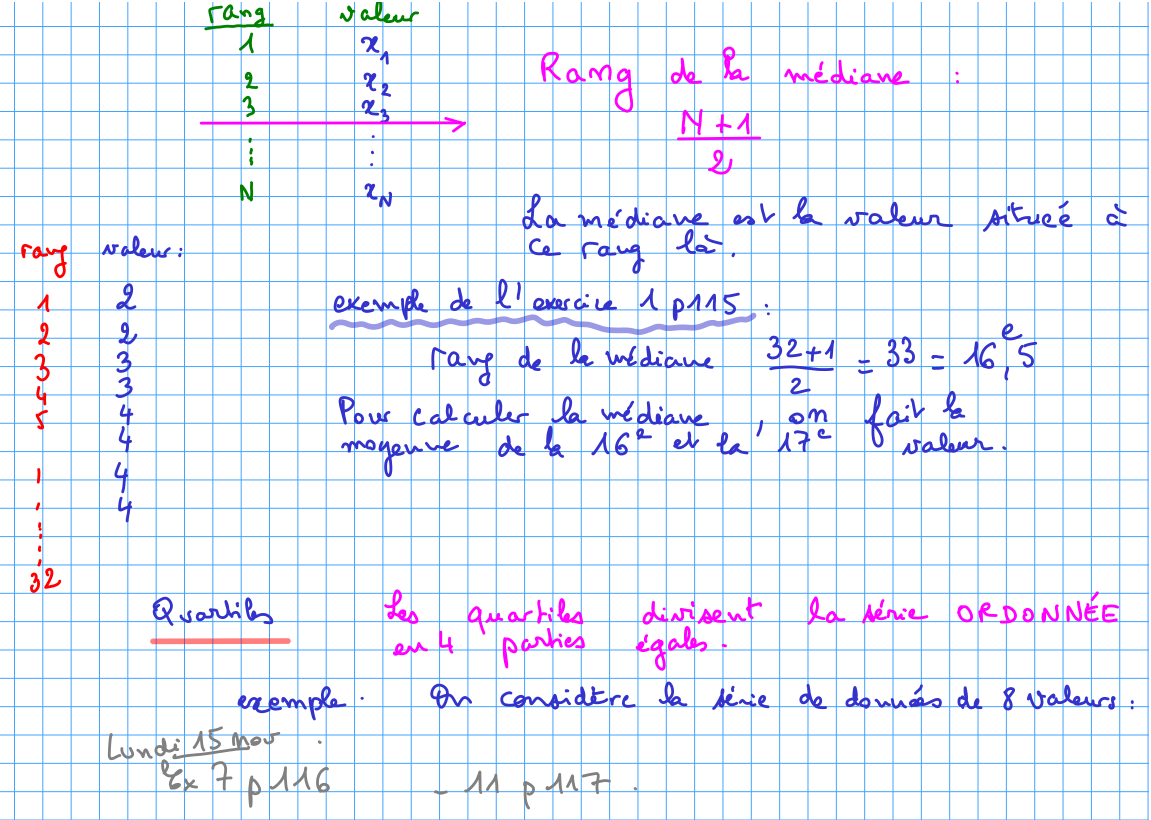 rang valeur
1 x₁
2 x₂
3 x₃
⋮ ⋮
N x_N
Rang de la médiane :
N + 1
2
La médiane est la valeur situéé à
ce rang là.
rang valeur :
1 2
2 2
3 3
4 3
5 4
4
4
4
32
exemple de l'exercice 1 p115 :
rang de la médiane 32+1 / 2 = 33 = 16,5ᵉ
Pour calculer la médiane, on fait la
moyenne de la 16ᵉ et la 17ᵉ valeur.
Quartiles
Les quartiles divisent la série ORDONNÉE
en 4 parties égales.
exemple. On considère la série de données de 8 valeurs :
Lundi 15 nov.
Ex 7 p 116 - 11 p 117.